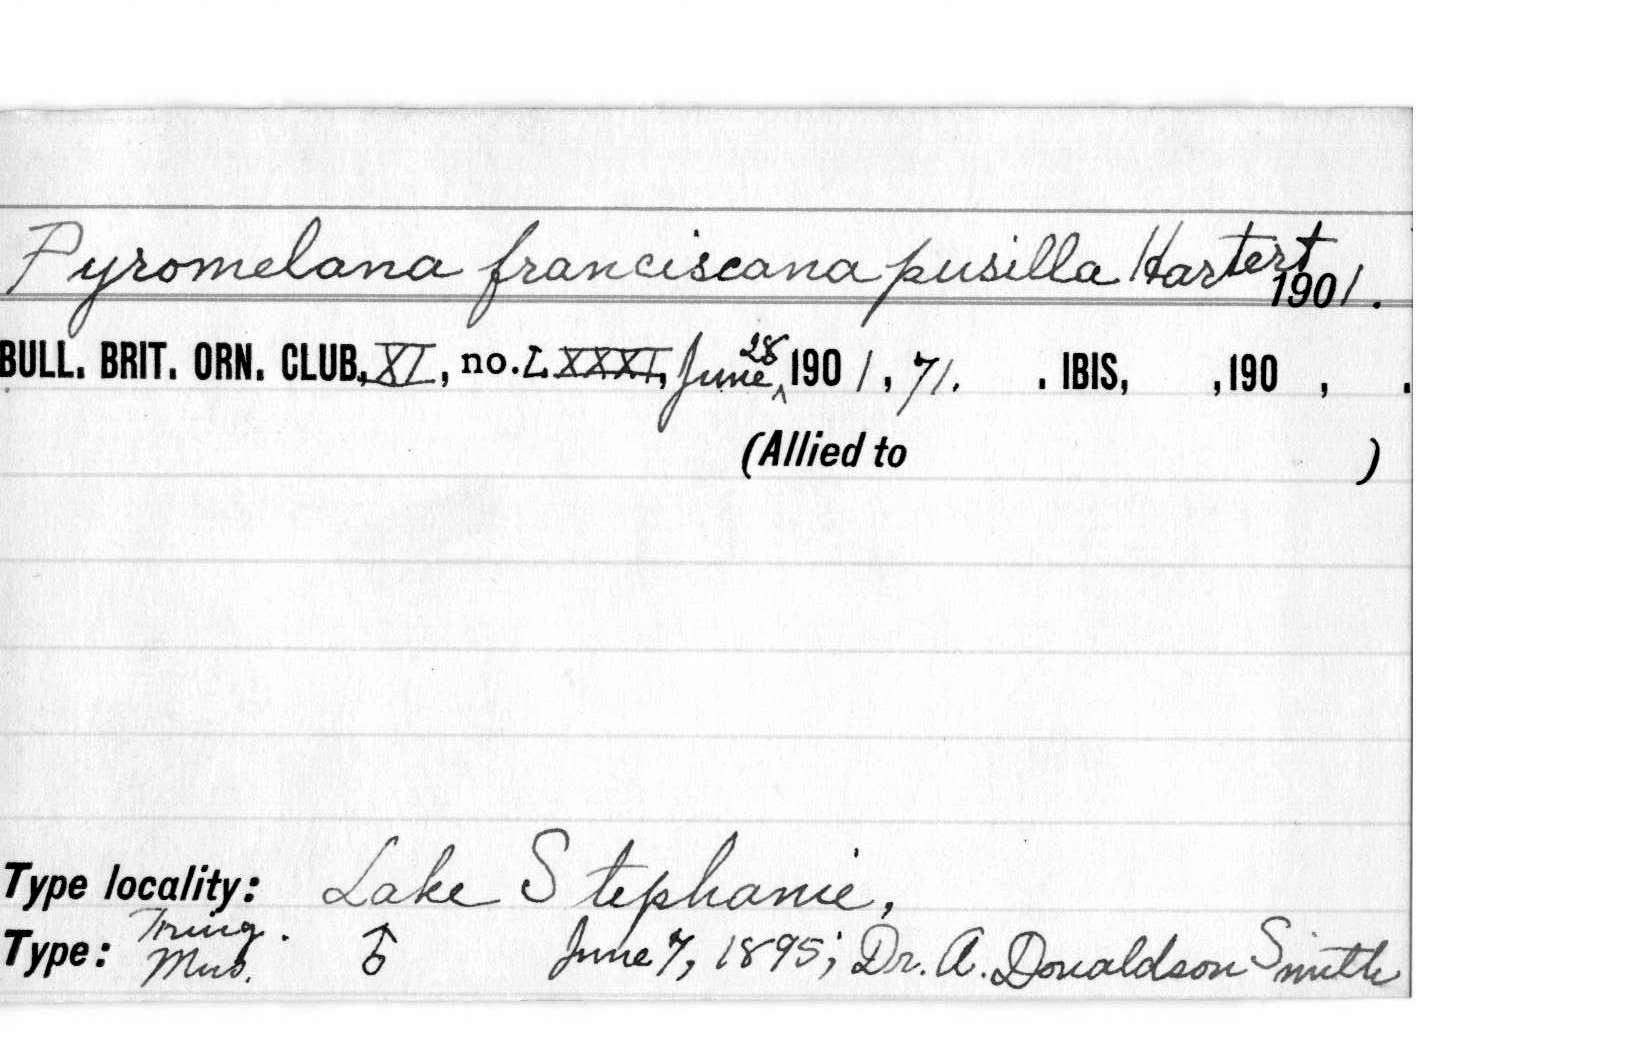 Pyromelana franciscana pusilla Hartert
1901.
BULL. BRIT. ORN. CLUB, XI, no. LXXXI, June 28, 1901, 71. . IBIS, ,190 , .
(Allied to )
Type locality: Lake Stephanie,
Type: Tring. Mus. ♂ June 7, 1895; Dr. A. Donaldson Smith